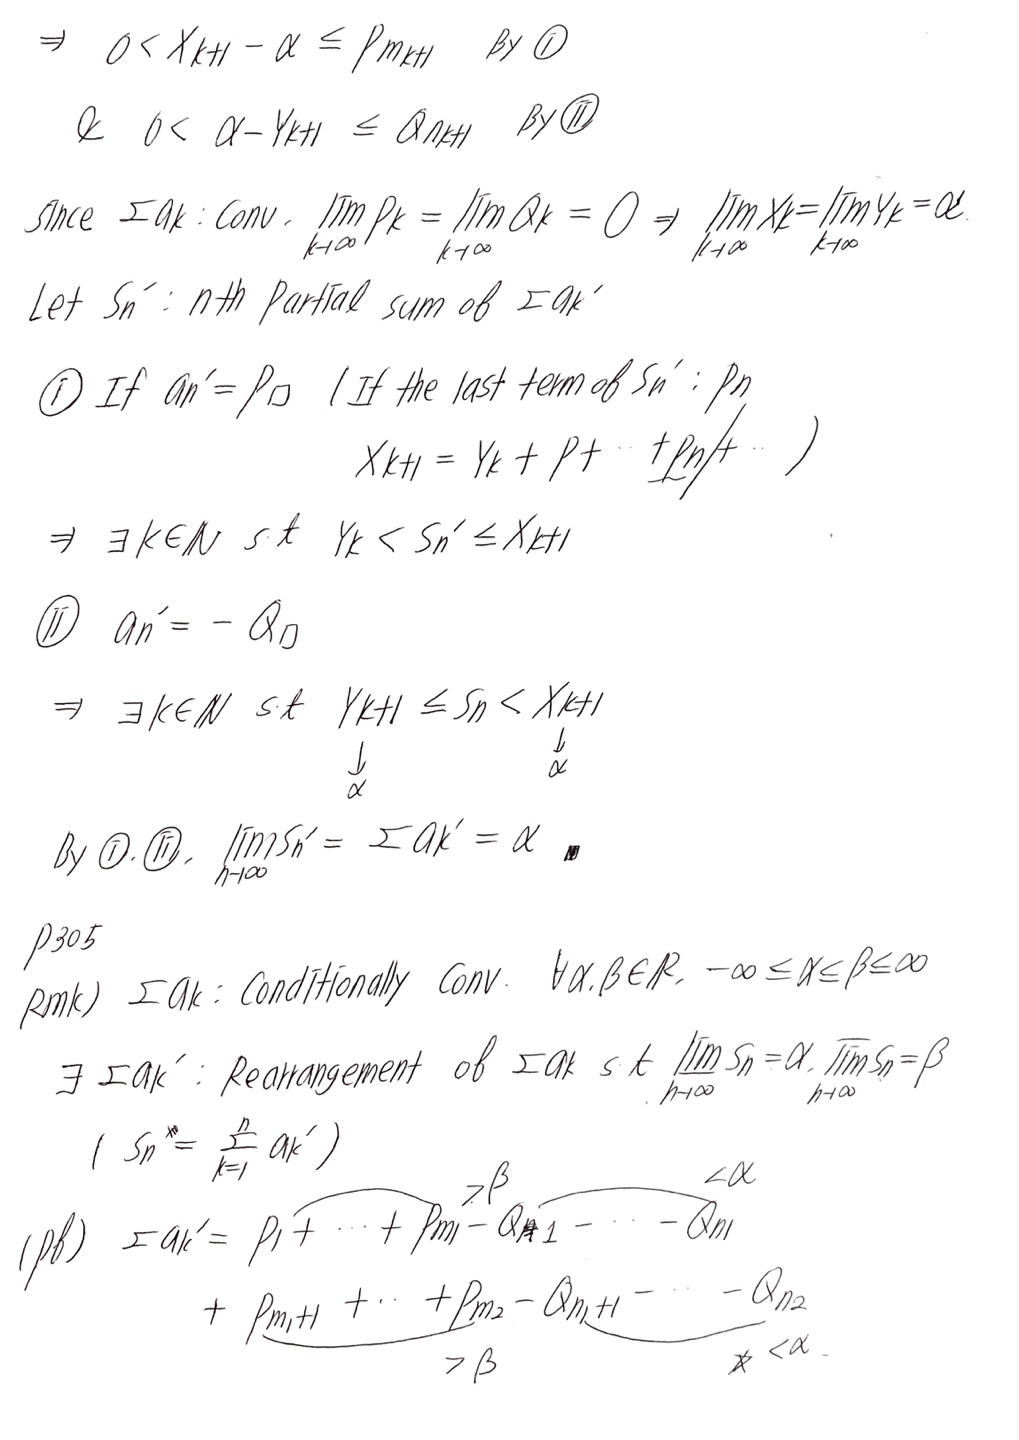 ⇒ 0 < X_{k+1} - α ≤ P_{m_{k+1}} By Ⓘ
& 0 < α - Y_{k+1} ≤ Q_{n_{k+1}} By Ⓘ︎Ⓘ︎
since Σak : Conv. lim_{k→∞} Pk = lim_{k→∞} Qk = 0 ⇒ lim_{k→∞} Xk = lim_{k→∞} Yk = α.
Let Sn' : nth Partial sum of Σak'
Ⓘ If an' = P□ ( If the last term of Sn' : Pn
X_{k+1} = Yk + P + ·· + Pn/+ ·· )
⇒ ∃k∈N s.t Yk < Sn' ≤ X_{k+1}
(II) an' = - Q□
⇒ ∃k∈N s.t Y_{k+1} ≤ Sn < X_{k+1}
↓ ↓
α α
By Ⓘ.(II), lim_{n→∞} Sn' = Σak' = α
P305
Rmk) Σak : Conditionally Conv. ∀α.β∈R, -∞ ≤ α ≤ β ≤ ∞
∃ Σak' : Rearrangement of Σak s.t \underline{lim}_{n→∞} Sn = α. \overline{lim}_{n→∞} Sn = β
( Sn = Σ_{k=1}^{n} ak' )
> β < α
(pf) Σak' = P1 + ··· + Pm1 - Q1 - ··· - Qn1
+ P_{m1+1} + ·· + P_{m2} - Q_{n1+1} - ··· - Q_{n2}
> β < α